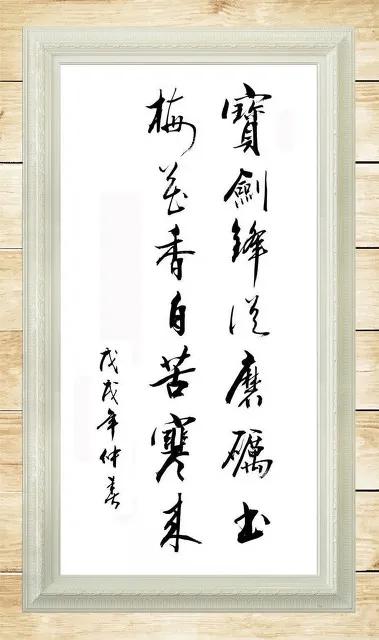 寶劍鋒從磨礪出
梅花香自苦寒來
戊戌年仲春